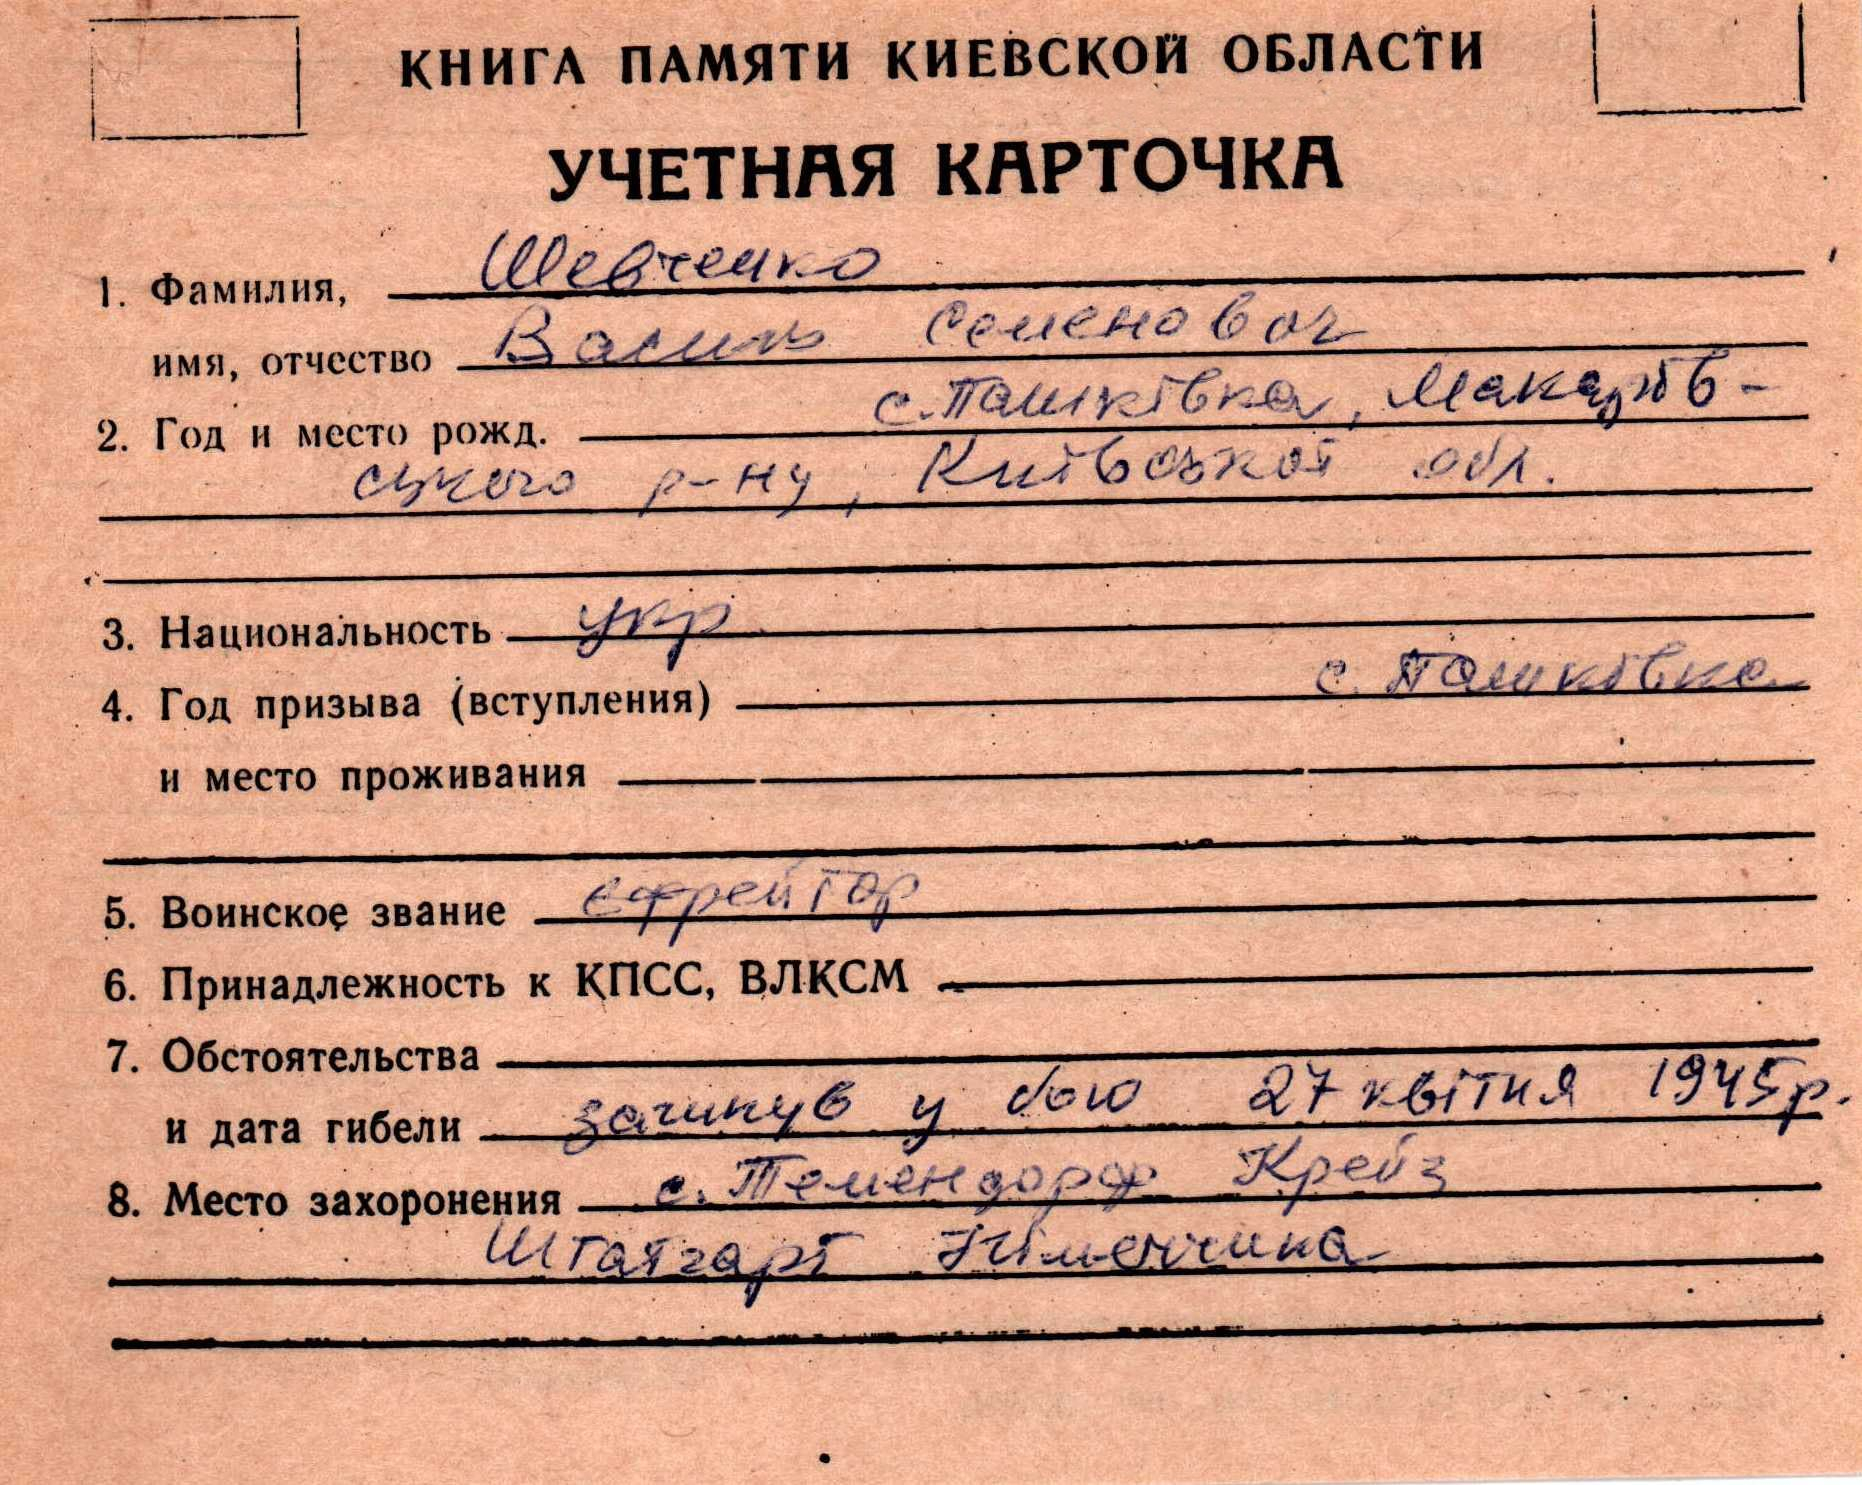 КНИГА ПАМЯТИ КИЕВСКОЙ ОБЛАСТИ
УЧЕТНАЯ КАРТОЧКА
1. Фамилия, Шевченко
имя, отчество Василь Семенович
2. Год и место рожд. с. Пашківка, Макарів-
ського р-ну, Київської обл.
3. Национальность укр
4. Год призыва (вступления) с. Пашківка
и место проживания
5. Воинское звание єфрейтор
6. Принадлежность к КПСС, ВЛКСМ
7. Обстоятельства
и дата гибели загинув у бою 27 квітня 1945 р.
8. Место захоронения с. Темендорф Крейз
Штатгарт Німеччина